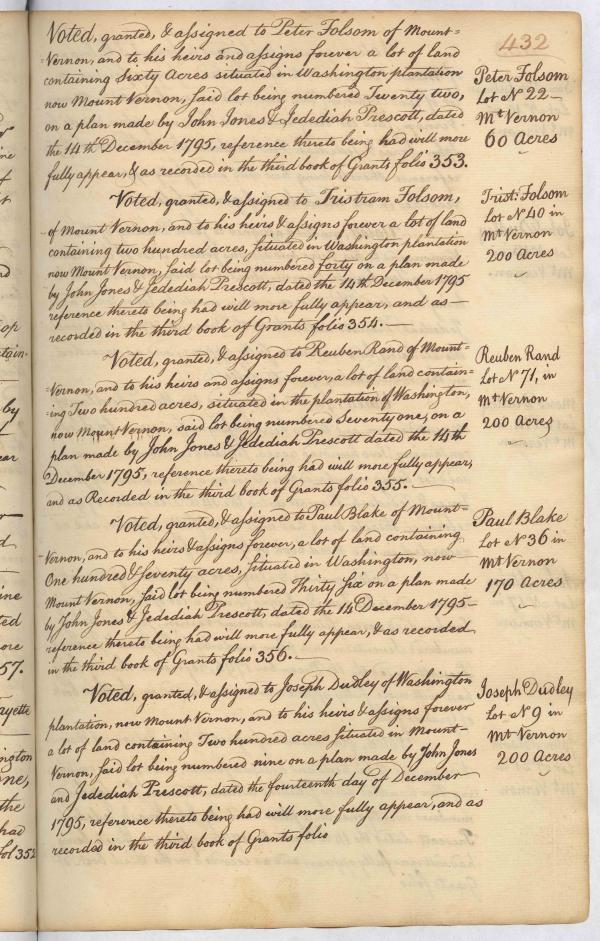 432
Voted, granted, & assigned to Peter Folsom of Mount=
Vernon, and to his heirs and assigns forever a lot of land
containing Sixty Acres situated in Washington plantation
now Mount Vernon, said lot being numbered Twenty two,
on a plan made by John Jones & Jedediah Prescott, dated
the 14th December 1795, reference thereto being had will more
fully appear, & as recorded in the third book of Grants folio 353.
Peter Folsom
Lot No 22—
Mt Vernon
60 Acres
Voted, granted, & assigned to Tristram Folsom,
of Mount Vernon, and to his heirs & assigns forever a lot of land
containing two hundred acres, situated in Washington plantation
now Mount Vernon, said lot being numbered forty on a plan made
by John Jones & Jedediah Prescott, dated the 14th December 1795
reference thereto being had will more fully appear, and as—
recorded in the third book of Grants folio 354.—
Trist: Folsom
Lot No 40 in
Mt Vernon
200 Acres
Voted, granted, & assigned to Reuben Rand of Mount=
Vernon, and to his heirs and assigns forever, a lot of land contain=
ing Two hundred acres, situated in the plantation of Washington,
now Mount Vernon, said lot being numbered Seventy one, on a
plan made by John Jones & Jedediah Prescott dated the 14th
December 1795, reference thereto being had will more fully appear,
and as Recorded in the third book of Grants folio 355.—
Reuben Rand
Lot No 71, in
Mt Vernon
200 Acres
Voted, granted, & assigned to Paul Blake of Mount=
Vernon, and to his heirs & assigns forever, a lot of land containing
One hundred & seventy acres, situated in Washington, now
Mount Vernon, said lot being numbered Thirty Six on a plan made
by John Jones & Jedediah Prescott, dated the 14 December 1795—
reference thereto being had will more fully appear, & as recorded
in the third book of Grants folio 356.—
Paul Blake
Lot No 36 in
Mt Vernon
170 Acres
Voted, granted, & assigned to Joseph Dudley of Washington
plantation, now Mount Vernon, and to his heirs & assigns forever
a lot of land containing Two hundred acres situated in Mount=
Vernon, said lot being numbered nine on a plan made by John Jones
and Jedediah Prescott, dated the fourteenth day of December
1795, reference thereto being had will more fully appear, and as
recorded in the third book of Grants folio
Joseph Dudley
Lot No 9 in
Mt Vernon
200 Acres